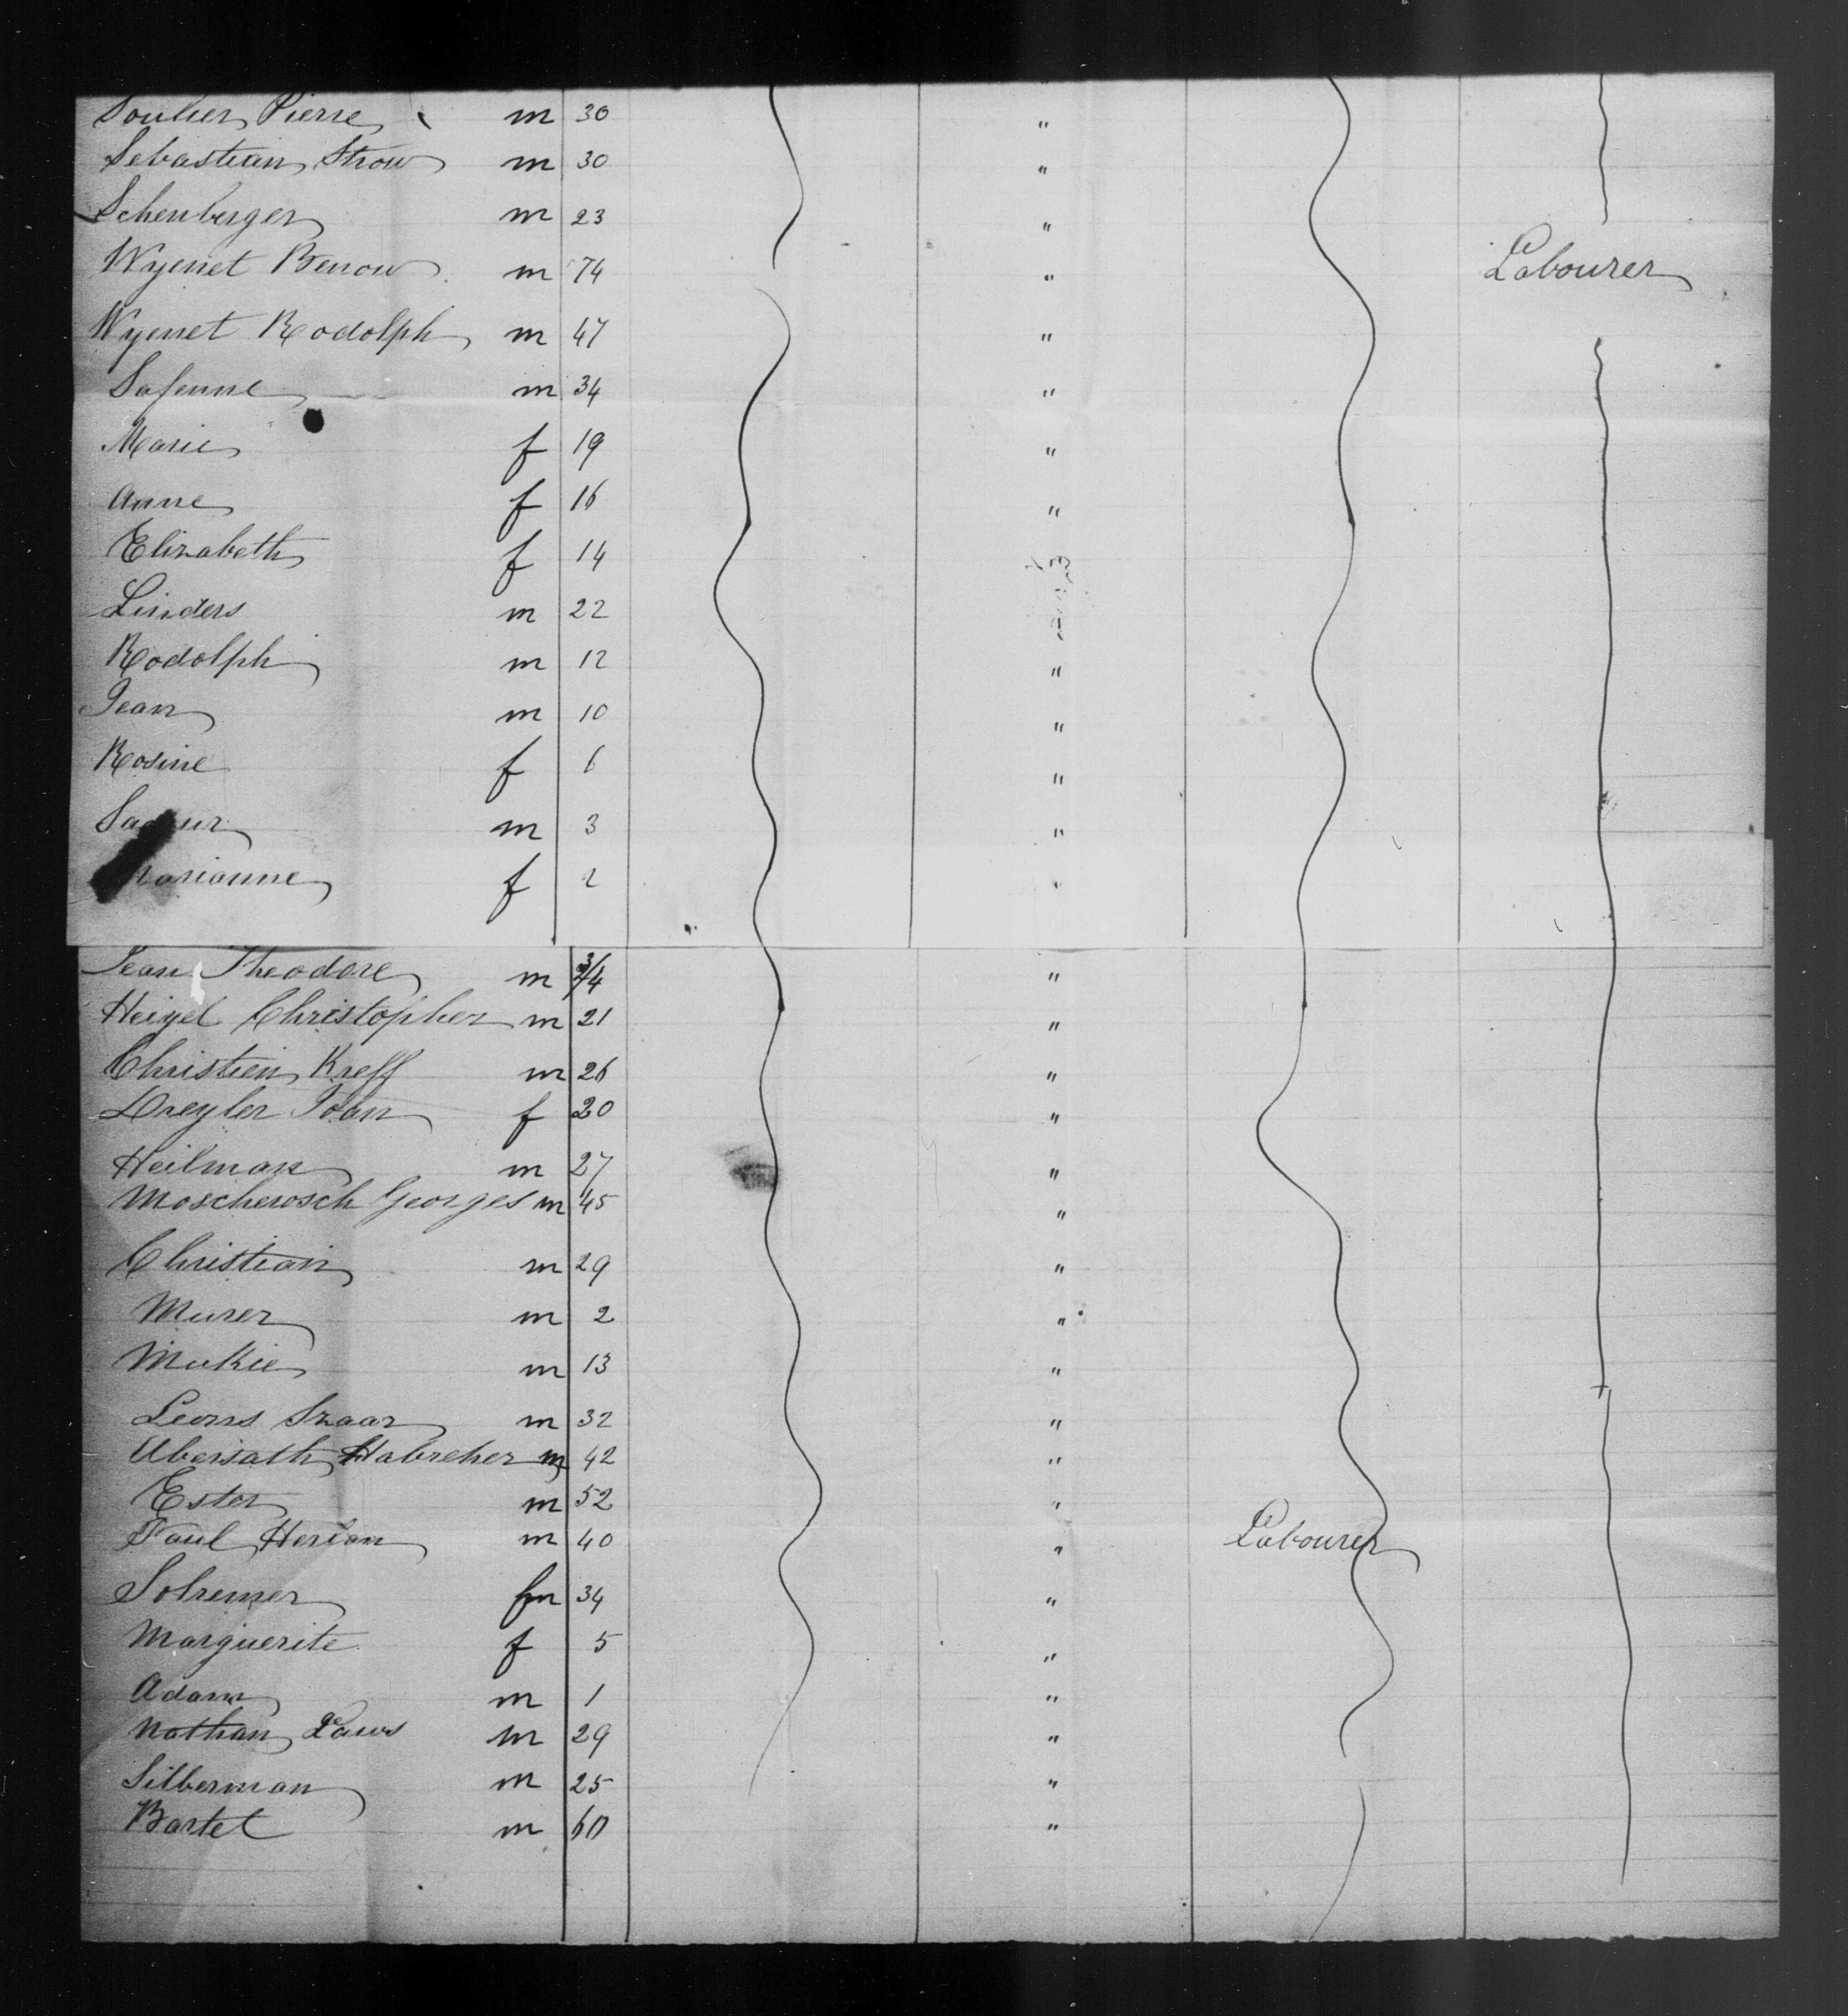 Soulier Pierre m 30 "
Sebastian Strow m 30 "
Schenberger m 23 "
Wyenet Benow m 74 " Labourer
Wyenet Rodolph m 47 "
Safenne m 34 "
Marie f 19 "
Anne f 16 "
Elizabeth f 14
Linders m 22
Rodolph m 12 "
Jean m 10 "
Rosine f 6 "
m 3 "
Marianne f 2 "
Jean Theodore m 3/4 "
Heigel Christopher m 21 "
Christien Kreff m 26 "
Dreyler Joan f 20 "
Heilman m 27 "
Moscherosch Georges m 45 "
Christian m 29 "
Murer m 2 "
Mukie m 13 "
Leons Isaac m 32 "
Ubersath Habreher m 42 "
Ester m 52 "
Paul Herlan m 40 " Labourer
Solremer m 34 "
Marguerite f 5 "
Adam m 1 "
Nathan Laws m 29 "
Silberman m 25 "
Bartel m 60 "